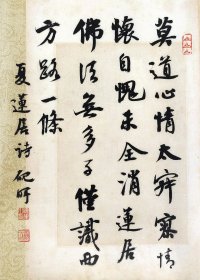 莫道心情太寂寥情
懷自愧未全消蓮居
佛法無多子僅識西
方路一條
夏蓮居詩